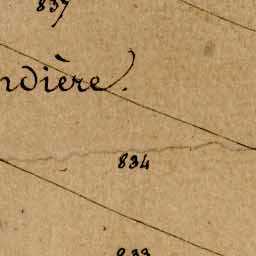 837
ndière.
834
833